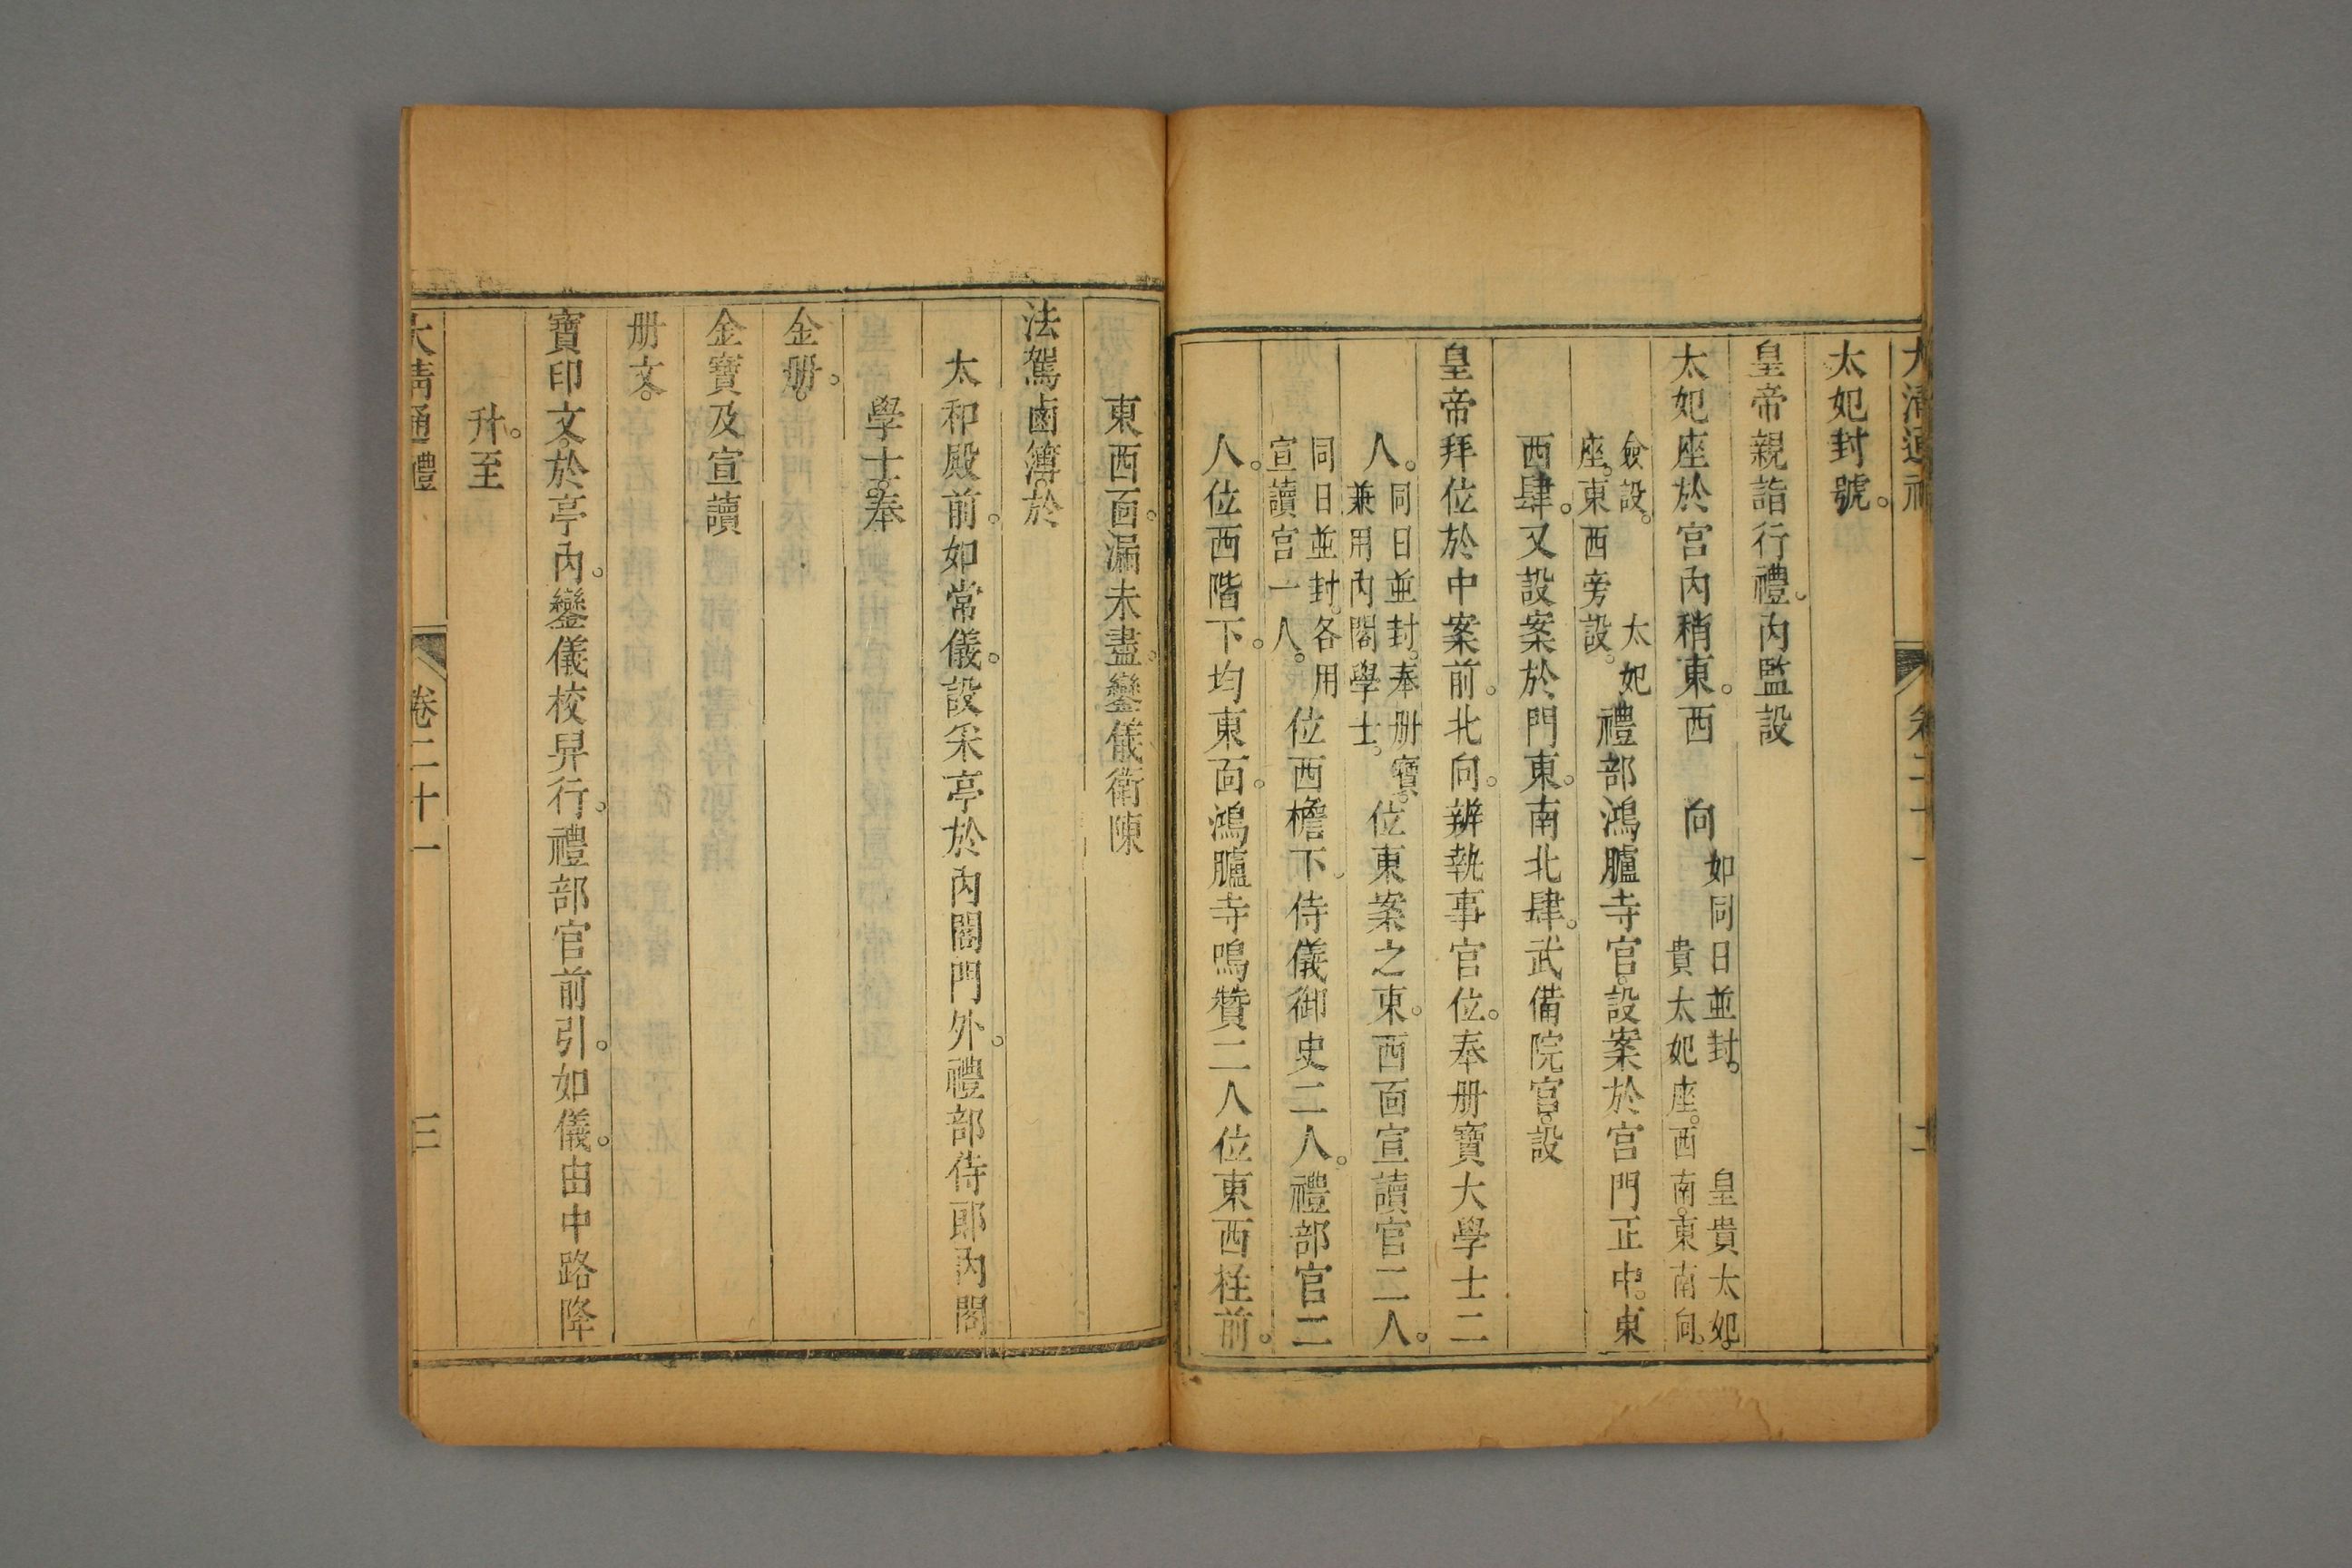 大清通禮 卷二十一 二
太妃封號。
皇帝親詣行禮。內監設
太妃座於宮內稍東。西向如同日並封。皇貴太妃。
貴太妃座。西南。東南向。
僉設。太妃
座。東西旁設。禮部鴻臚寺官。設案於宮門正中。東
西肆。又設案於門東。南北肆。武備院官。設
皇帝拜位於中案前。北向。辨執事官位。奉册寶大學士二
人。同日並封。奉册寶。
兼用內閣學士。位東案之東。西面宣讀官二人。
同日並封。各用
宣讀官一人。位西檐下。侍儀御史二人。禮部官二
人。位西階下。均東面。鴻臚寺鳴贊二人位東西柱前。
東西面。漏未盡。鑾儀衛陳
法駕鹵簿。於
太和殿前。如常儀。設采亭於內閣門外。禮部侍郎內閣
學士。奉
金册。
金寶及宣讀
册文。
寶印文。於亭內。鑾儀校舁行。禮部官前引。如儀。由中路降
升。至
大清通禮 卷二十一 三